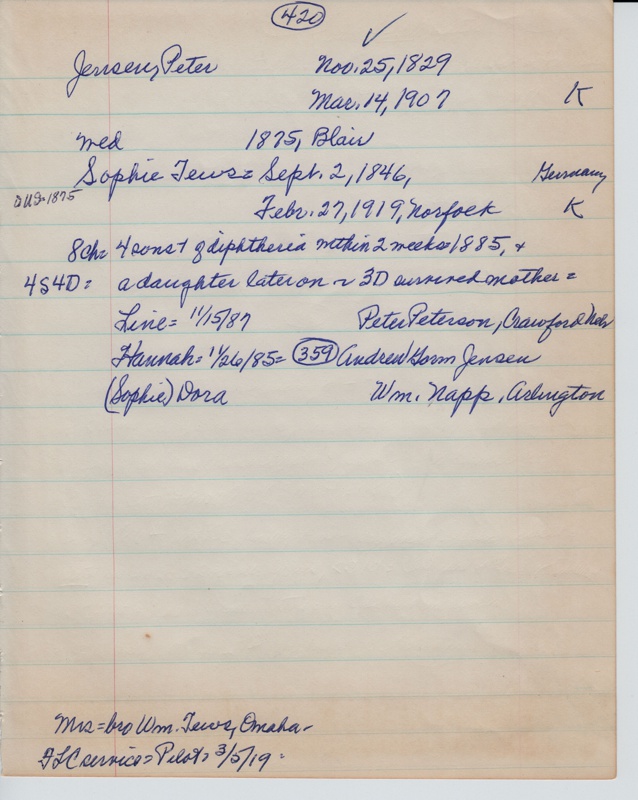 420 ✓
Jensen, Peter Nov. 25, 1829
Mar. 14, 1907 K
med 1875, Blair
Sophie Tews = Sept. 2, 1846, Germany
DUS-1875
Febr. 27, 1919, Norfolk K
8 ch = 4 sons † of diphtheria within 2 weeks = 1885, +
4S4D = a daughter later on ~ 3D survived mother =
Line = 11/15/87 Peter Peterson, Crawford Nebr
Hannah = 1/26/85 = 359 Andrew Gorm Jensen
(Sophie) Dora Wm. Napp, Arlington
Mrs = bro Wm. Tews, Omaha -
FLC service = Pilot = 3/5/19 -